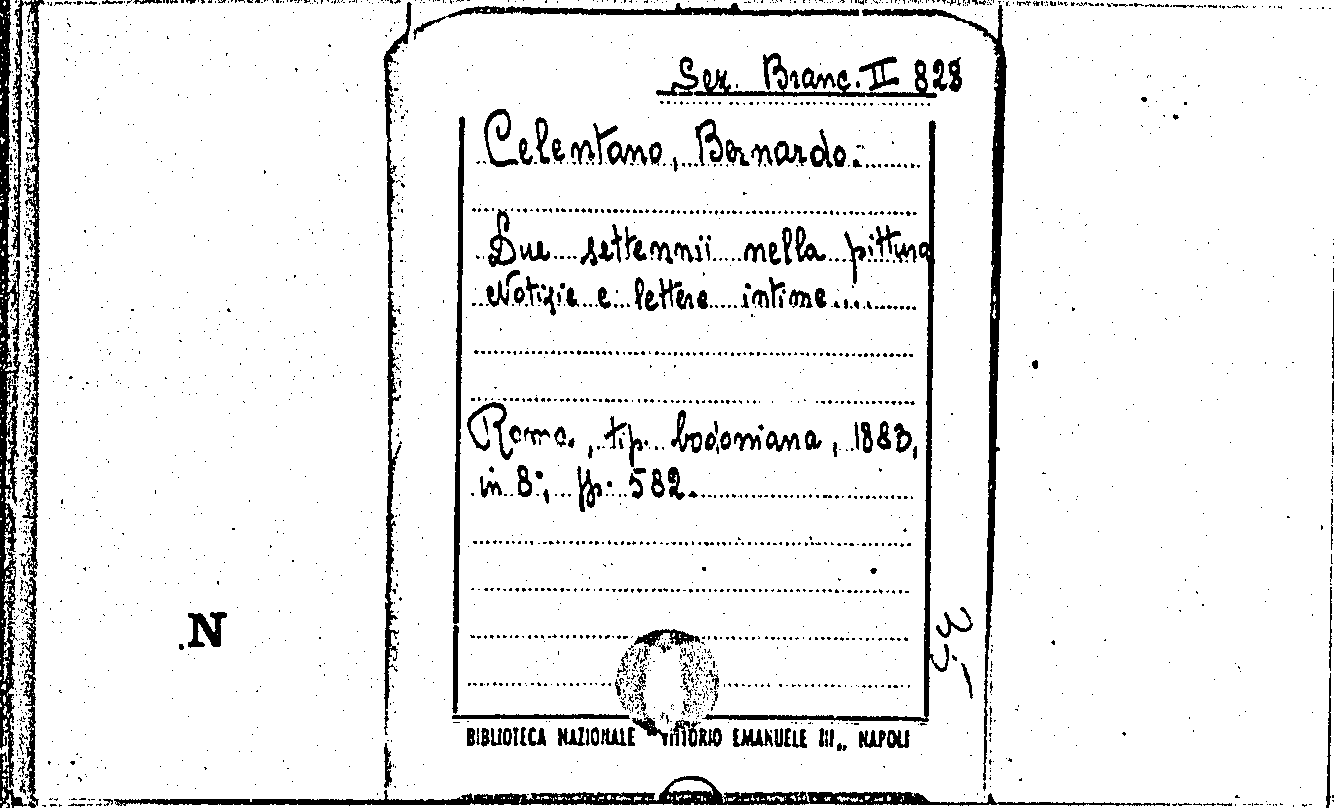 Sez. Branc. II 828
Celentano, Bernardo.
Due settennii nella pittura
Notizie e lettere intime....
Roma, tip. bodoniana, 1883,
in 8°, pp. 582.
N
BIBLIOTECA NAZIONALE "VITTORIO EMANUELE III" NAPOLI